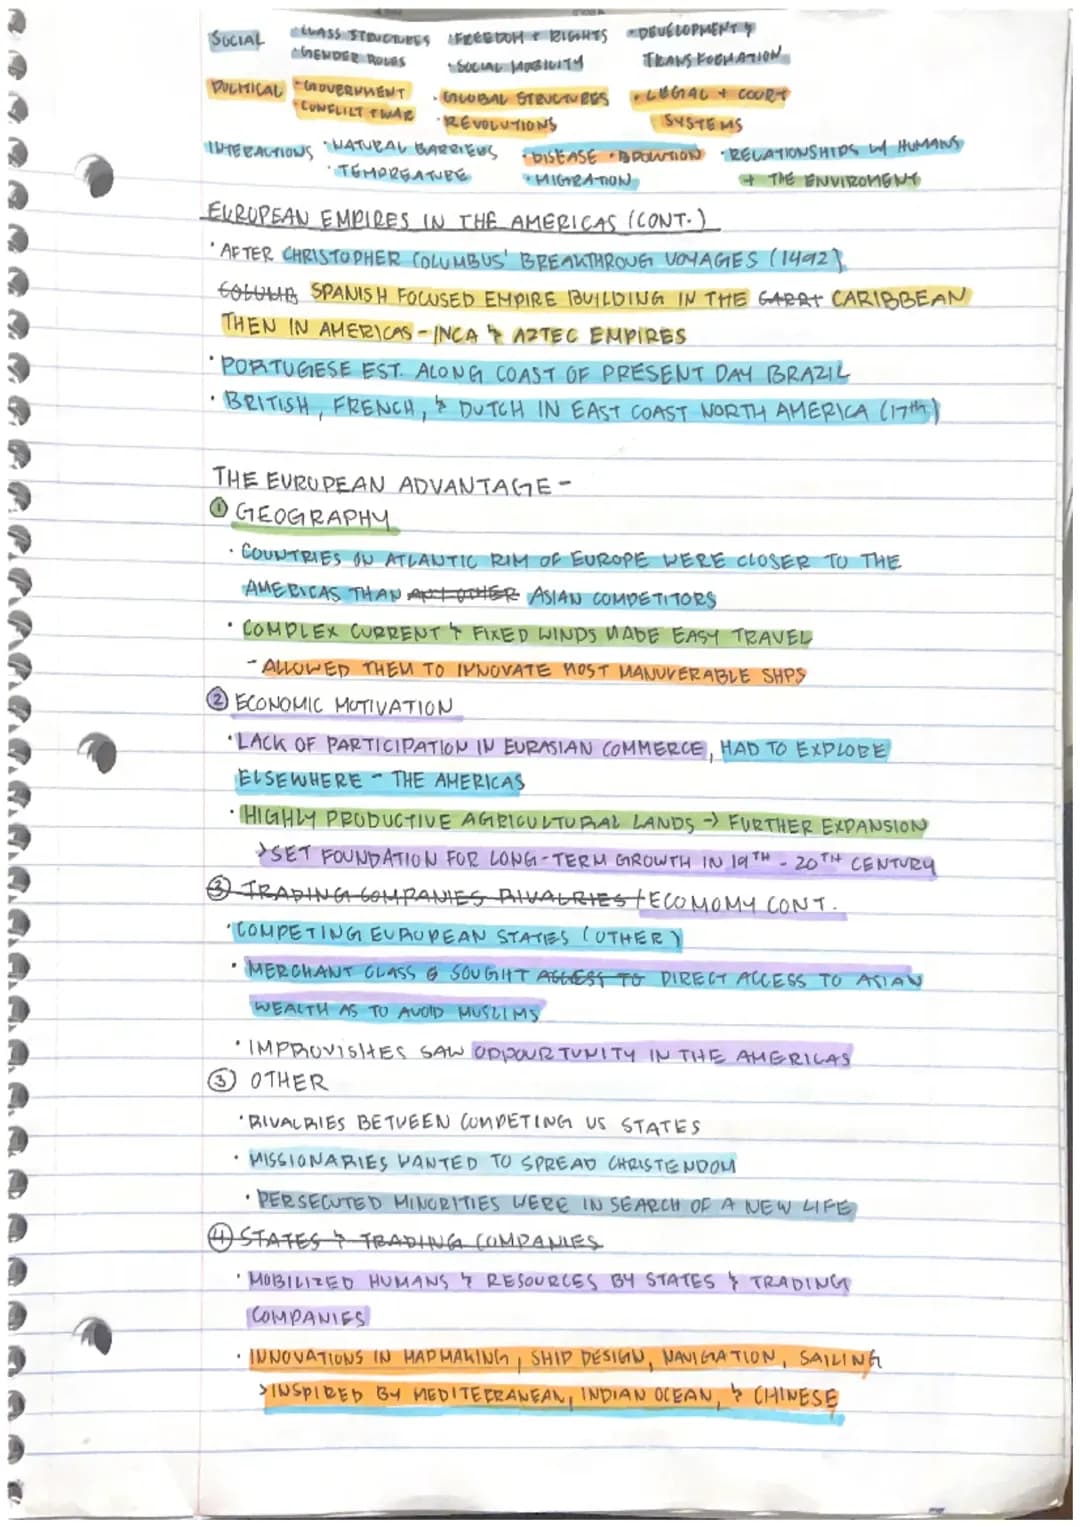 SOCIAL · CLASS STRUCTURES · FREEDOM & RIGHTS · DEVELOPMENT &
· GENDER ROLES · SOCIAL MOBILITY TRANSFORMATION
POLITICAL · GOVERNMENT · GLOBAL STRUCTURES · LEGAL + COURT
· CONFLICT & WAR · REVOLUTIONS SYSTEMS
INTERACTIONS · NATURAL BARRIERS · DISEASE · POLUTION · RELATIONSHIPS W/ HUMANS
· TEMPREATURE · MIGRATION + THE ENVIROMENT
EUROPEAN EMPIRES IN THE AMERICAS (CONT.)
· AFTER CHRISTOPHER COLUMBUS' BREAKTHROUGH VOYAGES (1492)
COLUMB SPANISH FOCUSED EMPIRE BUILDING IN THE CARRI CARIBBEAN
THEN IN AMERICAS - INCA & AZTEC EMPIRES
· PORTUGESE EST. ALONG COAST OF PRESENT DAY BRAZIL
· BRITISH, FRENCH, & DUTCH IN EAST COAST NORTH AMERICA (17th)
THE EUROPEAN ADVANTAGE -
① GEOGRAPHY
· COUNTRIES ON ATLANTIC RIM OF EUROPE WERE CLOSER TO THE
AMERICAS THAN ANY OTHER ASIAN COMPETITORS
· COMPLEX CURRENT & FIXED WINDS MADE EASY TRAVEL
- ALLOWED THEM TO INNOVATE MOST MANUVERABLE SHPS
② ECONOMIC MOTIVATION
· LACK OF PARTICIPATION IN EURASIAN COMMERCE, HAD TO EXPLORE
ELSEWHERE - THE AMERICAS
· HIGHLY PRODUCTIVE AGRICULTURAL LANDS → FURTHER EXPANSION
> SET FOUNDATION FOR LONG-TERM GROWTH IN 19TH - 20TH CENTURY
③ TRADING COMPANIES RIVALRIES / ECOMOMY CONT.
· COMPETING EUROPEAN STATES (OTHER)
· MERCHANT CLASS SOUGHT ACCESS TO DIRECT ACCESS TO ASIAN
WEALTH AS TO AVOID MUSLIMS
· IMPROVISHES SAW OPPOURTUNITY IN THE AMERICAS
③ OTHER
· RIVALRIES BETWEEN COMPETING US STATES
· MISSIONARIES WANTED TO SPREAD CHRISTENDOM
· PERSECUTED MINORITIES WERE IN SEARCH OF A NEW LIFE
④ STATES & TRADING COMPANIES
· MOBILIZED HUMANS & RESOURCES BY STATES & TRADING
COMPANIES
· INNOVATIONS IN MAPMAKING, SHIP DESIGN, NAVIGATION, SAILING
> INSPIRED BY MEDITERRANEAN, INDIAN OCEAN, & CHINESE